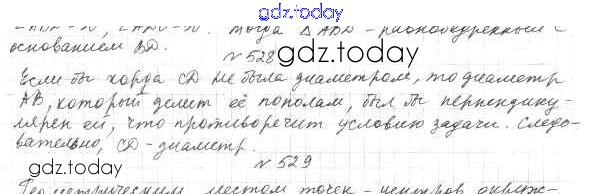 gdz.today
тогда △ABD - равнобедренный с
основанием BD.
№528
gdz.today
Если бы хорда CD не была диаметром, то диаметр
AB, который делит её пополам, был бы перпендику-
лярен ей, что противоречит условию задачи. Следо-
вательно, CD - диаметр.
gdz.today
№529
Геометрическим местом точек - центров окруж-